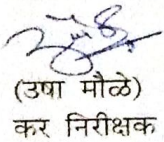 (उषा मौळे)
कर निरीक्षक